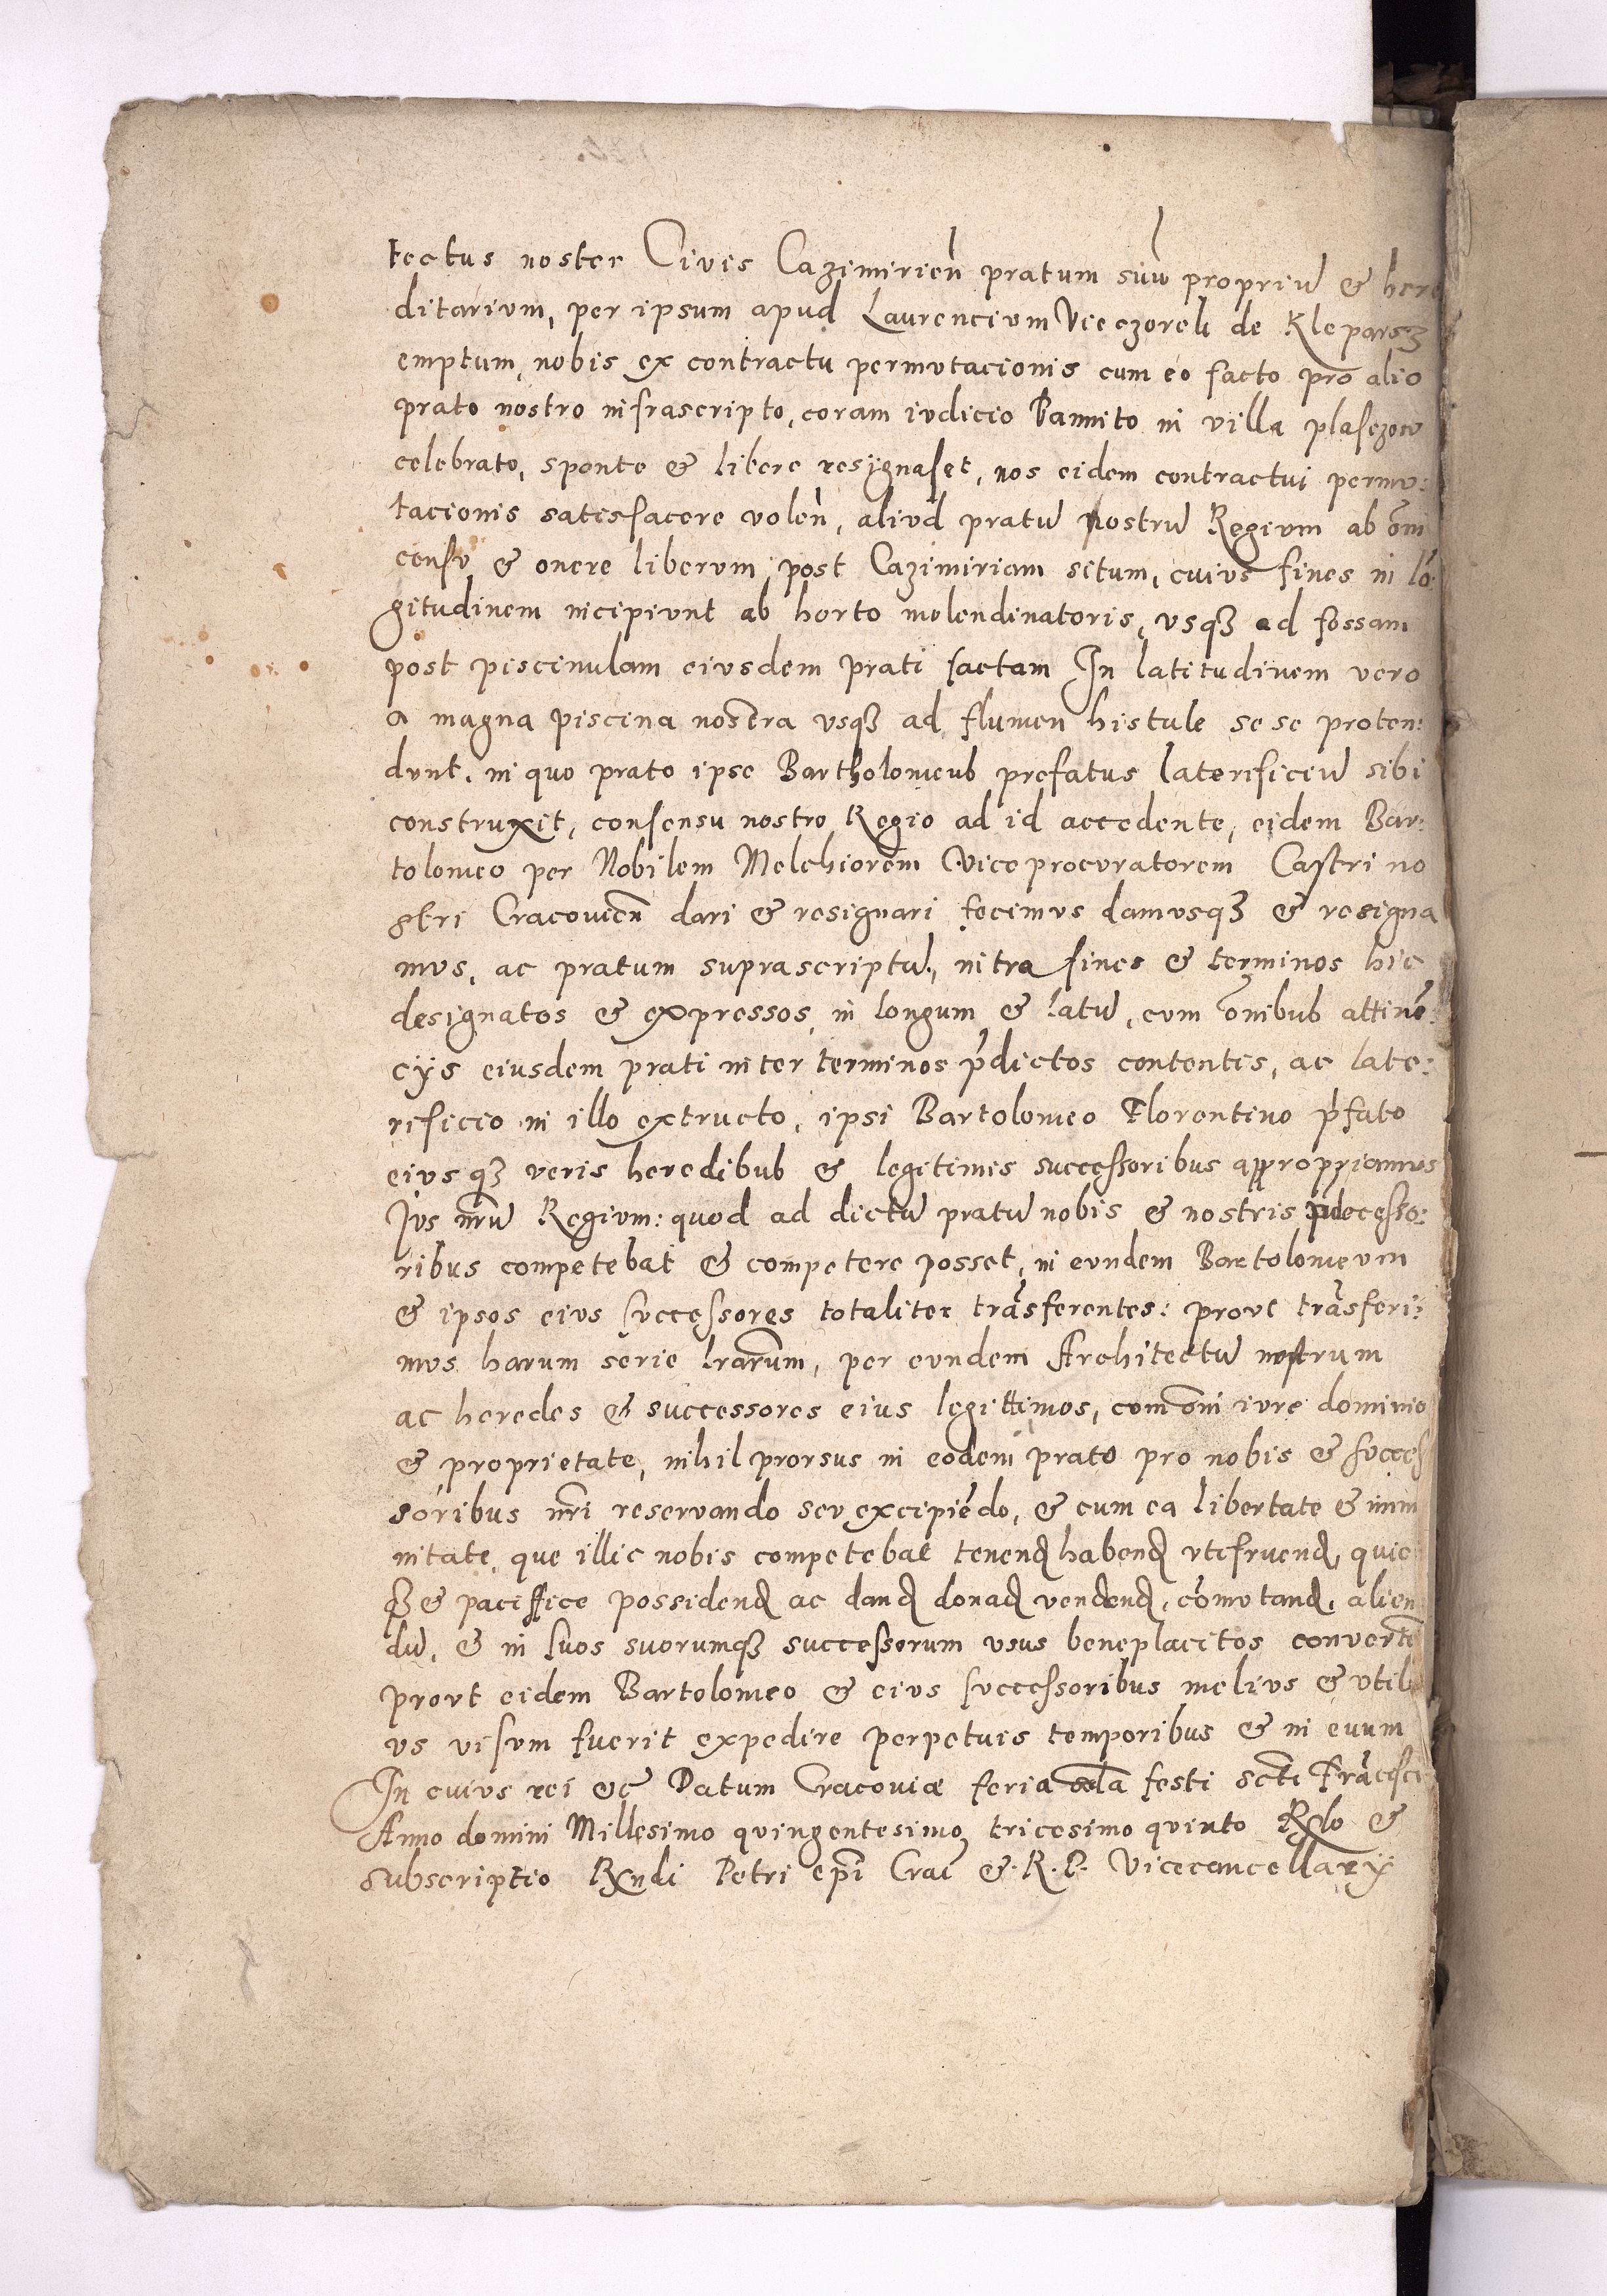 tectus noster Civis Cazimirien̄ pratum suū propriū & here
ditarium, per ipsum apud Laurencium Vieczorek de Kleparz
emptum, nobis ex contractu permutacionis cum eo facto pro alio
prato nostro infrascripto, coram iudicio bannito in villa plaszow
celebrato, sponte & libere resignasset, nos eidem contractui permu:
tacionis satisfacere volen̄, aliud pratū nostrū Regium ab om̄i
censu & onere liberum post Cazimiriam situm, cuius fines in lō:
gitudinem incipiunt ab horto molendinatoris, usqꝫ ad fossam
post piscinulam eiusdem prati factam In latitudinem vero
a magna piscina nostra usqꝫ ad flumen histule se se proten:
dunt, in quo prato ipse Bartholomeus prefatus laterificiū sibi
construxit, consensu nostro Regio ad id accedente, eidem Bar:
tolomeo per Nobilem Melchiorem Viceprocuratorem Castri no
stri Cracovien̄ dari & resignari fecimus damusqꝫ & resigna
mus, ac pratum suprascriptū, intra fines & terminos hic
designatos & expressos, in longum & latū, cum om̄ibus attinē:
cijs eiusdem prati inter terminos p̄dictos contentis, ac late:
rificio in illo extructo, ipsi Bartolomeo Florentino p̄fato
eiusqꝫ veris heredibus & legitimis successoribus appropriamus
Jus nr̄ū Regium: quod ad dictū pratū nobis & nostris p̄decesso:
ribus competebat & competere posset, in eundem Bartolomeum
& ipsos eius successores totaliter trāsferentes: prout trāsferi:
mus harum serie lr̄arum, per eundem Architectū nostrum
ac heredes & successores eius legittimos, cum om̄i iure dominio
& proprietate, nihil prorsus in eodem prato pro nobis & succes
soribus nr̄i reservando seu excipiēdo, & cum ea libertate & imm
nitate, que illic nobis competebat tenend habend utifruend, quie
qꝫ & paciffice possidend ac dand donād vendend, cōmutand, alien
dū, & in suos suorumqꝫ successorum usus beneplacitos convertē
prout eidem Bartolomeo & eius successoribus melius & utili
us visum fuerit expedire perpetuis temporibus & in euum
In cuius rei &c Datum Cracoviæ feria 2da festi Sct̄i Frācisci
Anno domini Millesimo quingentesimo tricesimo quinto Rlo &
subscriptio Rxndi Petri ep̄i Crac̄ & R. P. Vicecancellarij